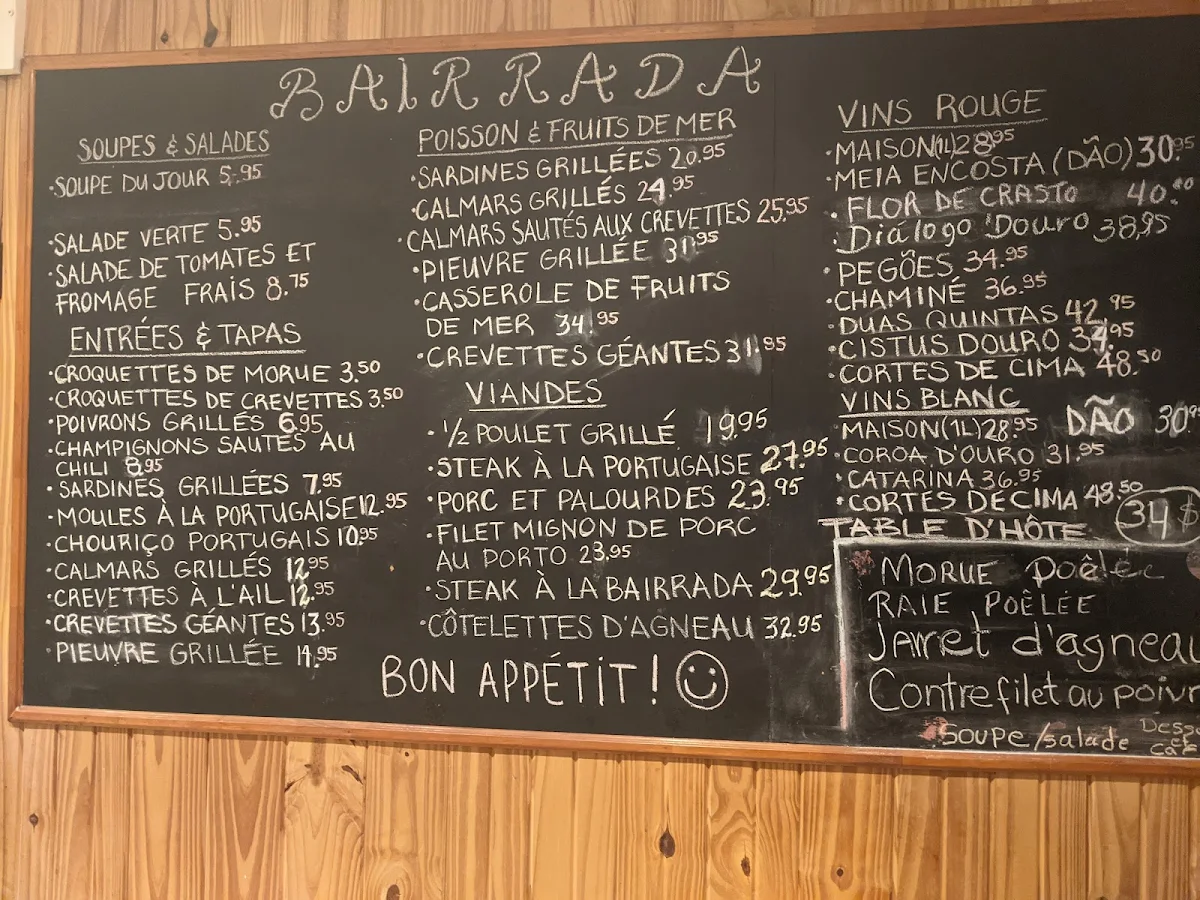 BAIRRADA
SOUPES & SALADES
·SOUPE DU JOUR 5.95
·SALADE VERTE 5.95
·SALADE DE TOMATES ET
FROMAGE FRAIS 8.75
ENTRÉES & TAPAS
·CROQUETTES DE MORUE 3.50
·CROQUETTES DE CREVETTES 3.50
·POIVRONS GRILLÉS 6.95
·CHAMPIGNONS SAUTÉS AU
CHILI 8.95
·SARDINES GRILLÉES 7.95
·MOULES À LA PORTUGAISE 12.95
·CHOURIÇO PORTUGAIS 10.95
·CALMARS GRILLÉS 12.95
·CREVETTES À L'AIL 12.95
·CREVETTES GÉANTES 13.95
·PIEUVRE GRILLÉE 14.95
POISSON & FRUITS DE MER
·SARDINES GRILLÉES 20.95
·CALMARS GRILLÉS 24.95
·CALMARS SAUTÉS AUX CREVETTES 25.95
·PIEUVRE GRILLÉE 31.95
·CASSEROLE DE FRUITS
DE MER 34.95
·CREVETTES GÉANTES 31.95
VIANDES
·1/2 POULET GRILLÉ 19.95
·STEAK À LA PORTUGAISE 27.95
·PORC ET PALOURDES 23.95
·FILET MIGNON DE PORC
AU PORTO 23.95
·STEAK À LA BAIRRADA 29.95
·CÔTELETTES D'AGNEAU 32.95
BON APPÉTIT!
VINS ROUGE
·MAISON(1L) 28.95
·MEIA ENCOSTA (DÃO) 30.95
·FLOR DE CRASTO 40.00
·Diálogo Douro 38,95
·PEGÕES 34.95
·CHAMINÉ 36.95
·DUAS QUINTAS 42.95
·CISTUS DOURO 34.95
·CORTES DE CIMA 48.50
VINS BLANC
·MAISON(1L) 28.95 DÃO 30.
·COROA D'OURO 31.95
·CATARINA 36.95
·CORTES DE CIMA 48.50
TABLE D'HÔTE 34$
MORUE Poêlée
RAIE POÊLÉE
Jarret d'agneau
Contrefilet au poivr
Soupe/salade Dess
café